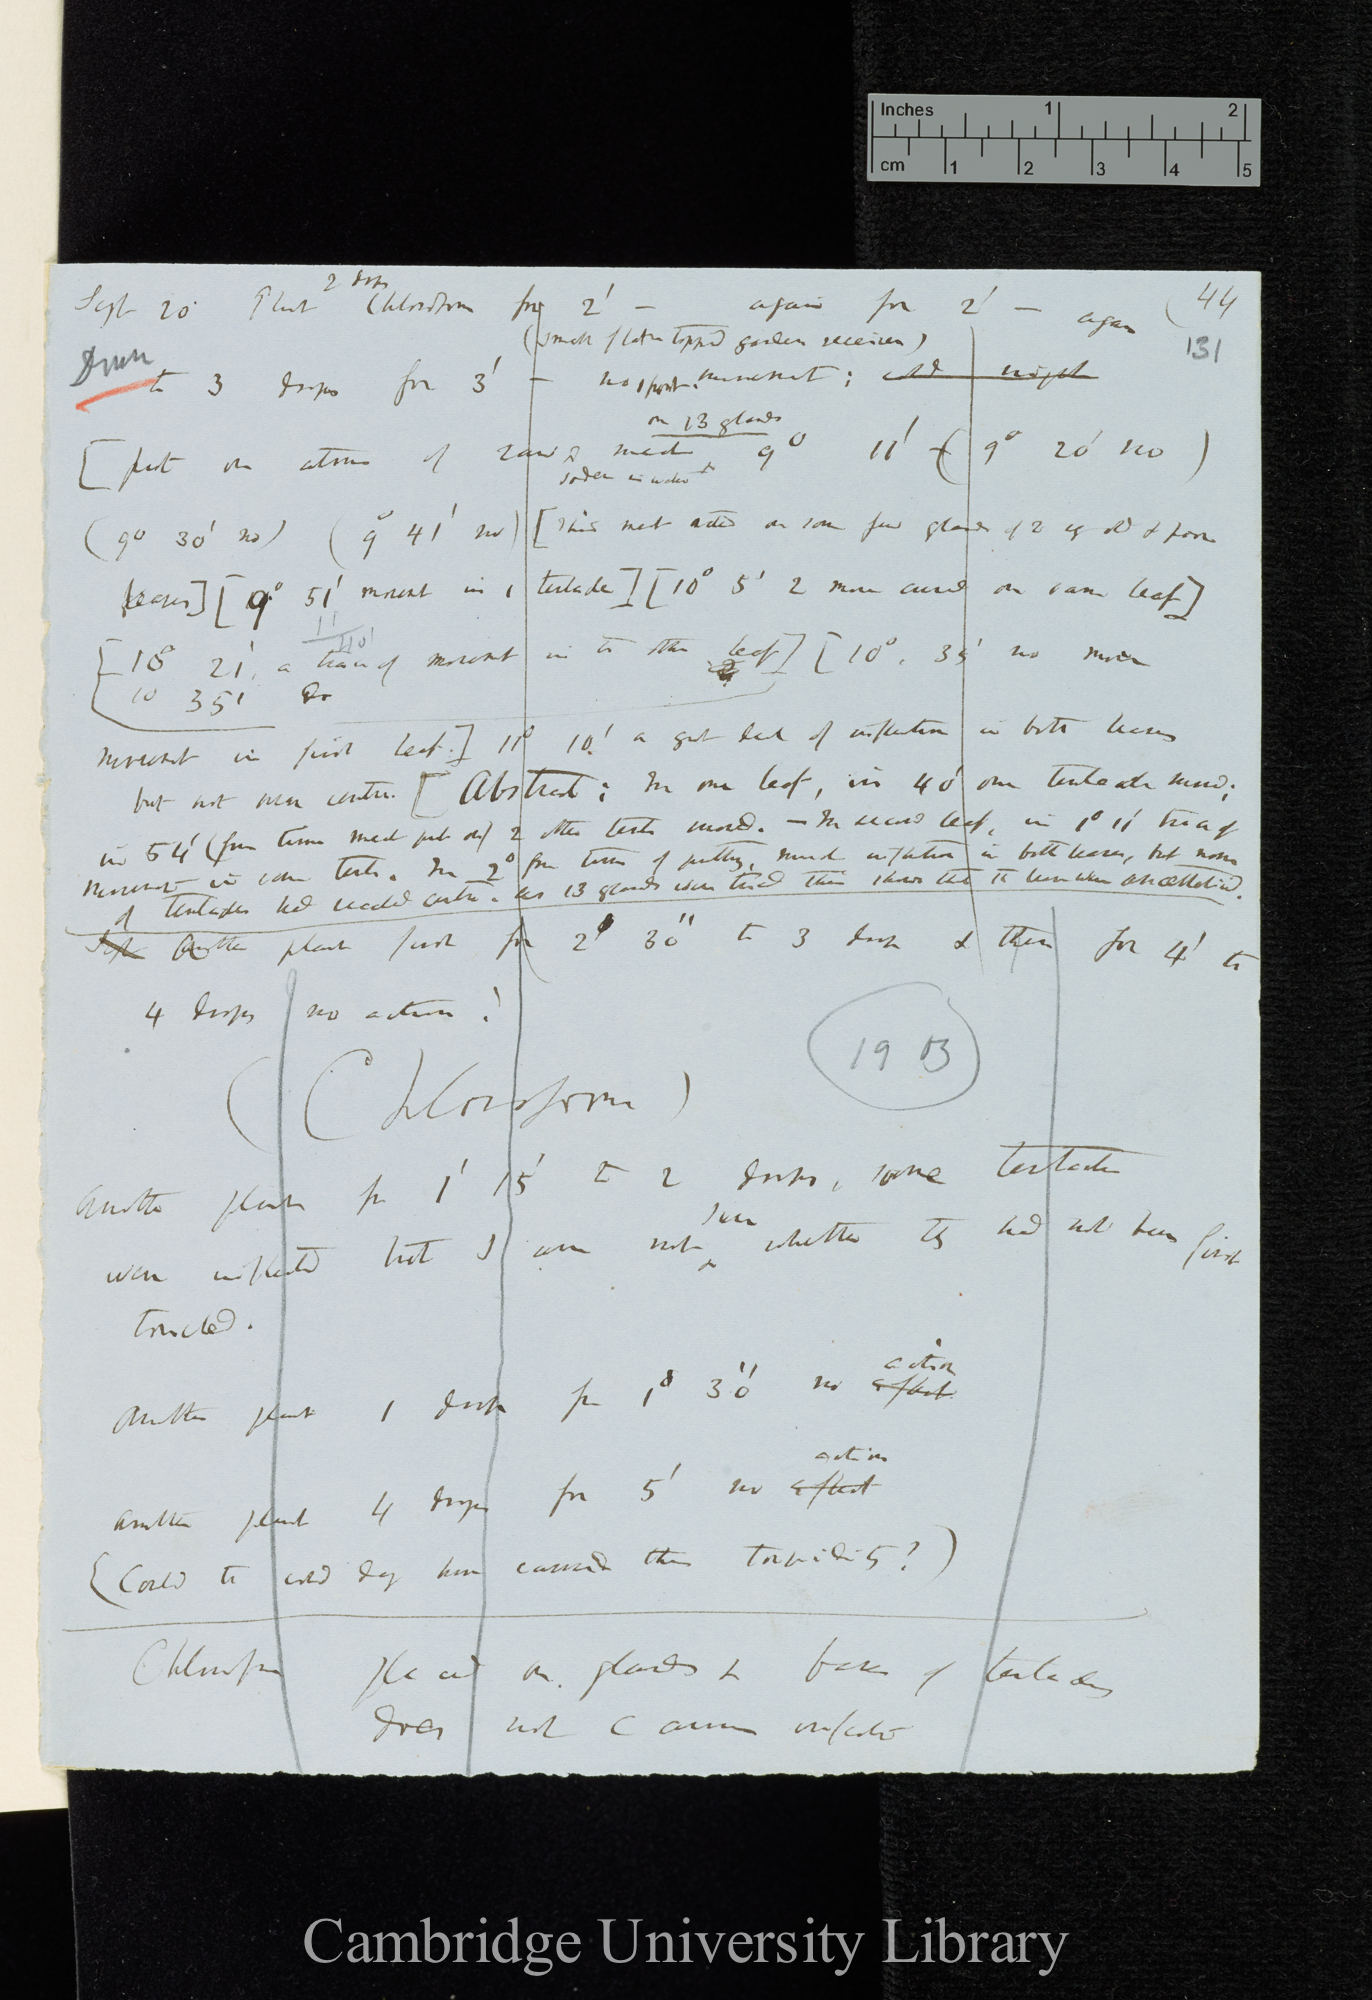 Inches 1 2
cm 1 2 3 4 5
44
131
Sept 20 Plant 2 drops Chloroform for 2' — again for 2' — again
(small flatter topped garden receiver)
to 3 drops for 3' — no movement; cold night
on 13 glands
[put on atoms of raw meat 9° 11' — (9° 20' no)
soaked in water
(9° 30' no) (9° 41' no) [This meat acted on some few glands of 2 old & poor
leaves] [9° 51' movement in 1 tentacle] [10° 5' 2 more curved on same leaf]
[10° 21', a trace of movement in the other leaf] [10°. 35' no more
10 35' Do
movement in first leaf.] 11° 10' a great deal of inflection in both leaves
but not even centre. [Abstract: In one leaf, in 40' one tentacle moved;
in 54' (from time meat put on) 2 other tents moved. — In second leaf, in 1° 11' trace of
movement in some tents. In 2° from time of putting, much inflection in both leaves, but none
of tentacles had reached centre. As 13 glands were tried this shows that the leaves were anaesthetised.
Sept Another plant first for 2' 30" to 3 drops & then for 4' to
4 drops no action!
(Chloroform)
19 B
Another plant for 1' 15' to 2 drops, some tentacles
were inflected but I am not sure whether they had not been first
touched.
Another plant 1 drop for 1' 30" no effect action
Another plant 4 drops for 5' no effect action
(Could the cold day have caused this torpidity?)
Chloroform placed on glands & bases of tentacles
does not cause inflection
Cambridge University Library